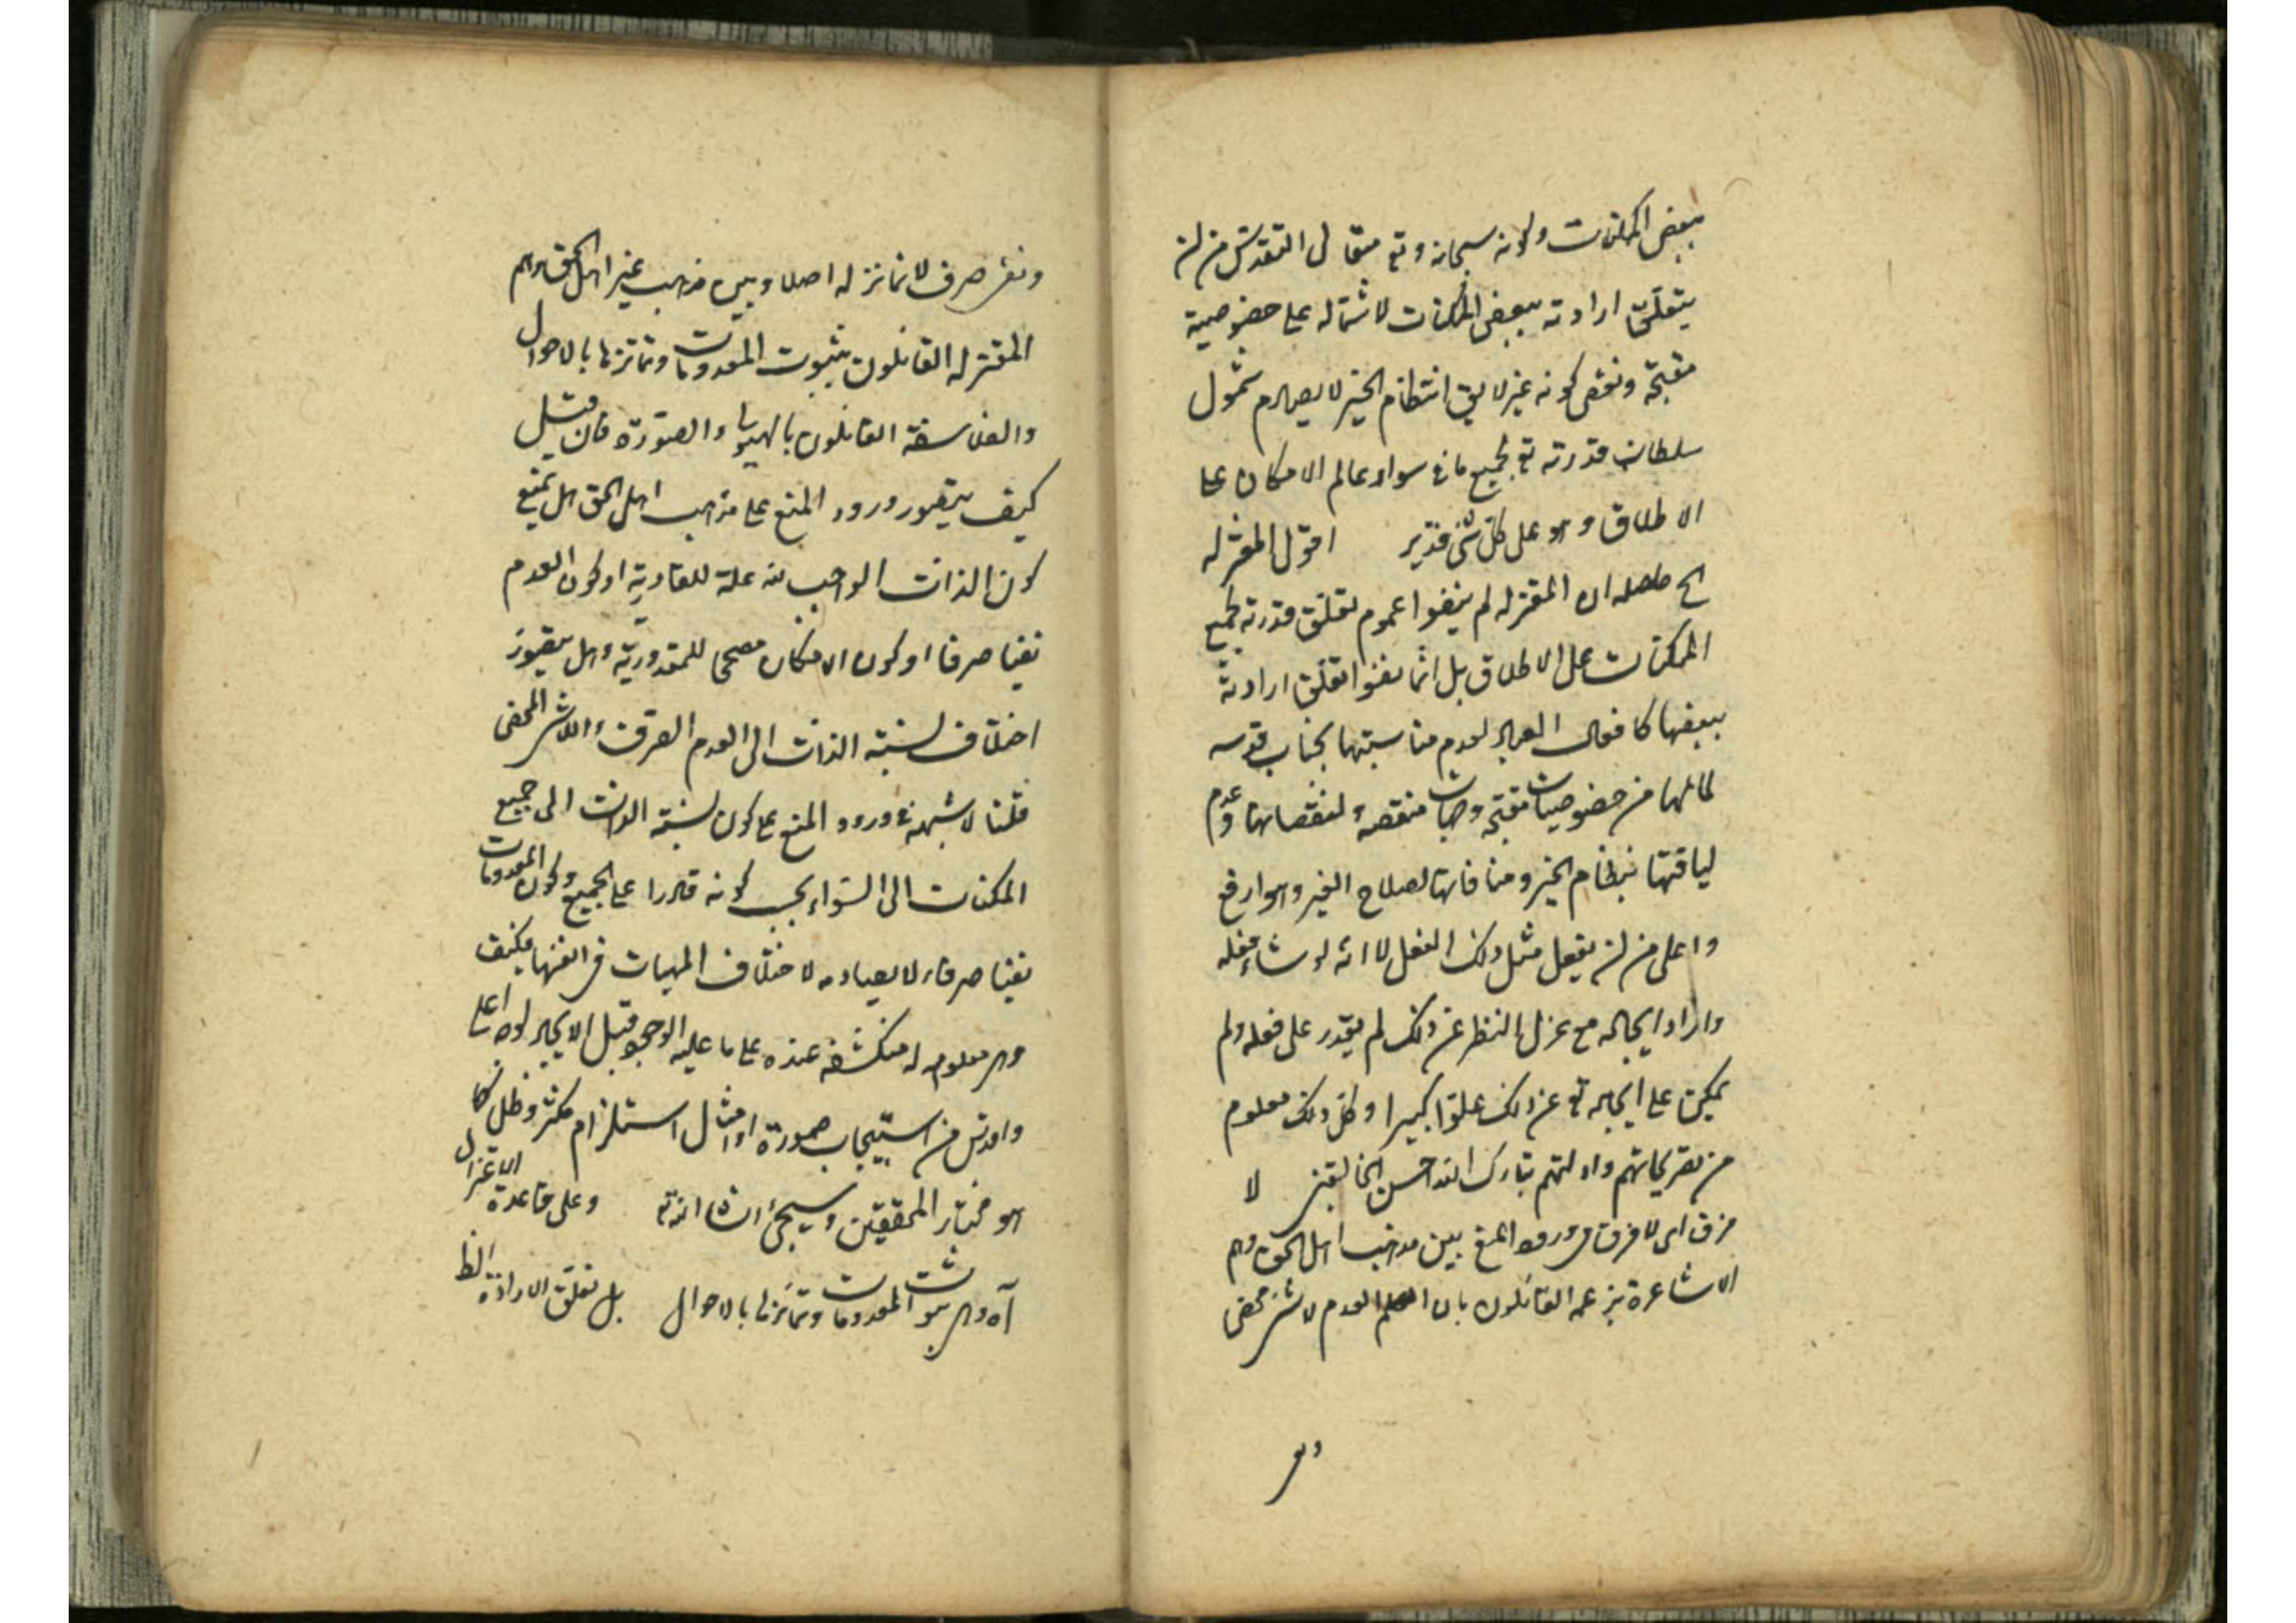 ببعض الممكنات ولانه سبحانه وتع متعالى التقدس من ان
يتعلق ارادته ببعض الممكنات لاشتماله على خصوصية
مقبحة ونقص كونه غير لايق انتظام الخير لا يصادم شمول
سلطان قدرته تع لجميع ما فى سواد عالم الامكان على
الاطلاق وهو على كل شئ قدير اقول المعتزله
الخ حاصله ان المعتزله لم ينفوا عموم تعلق قدرته لجميع
الممكنات على الاطلاق بل انما نفوا تعلق ارادته
ببعضها كافعال العباد لعدم مناسبتها بجناب قدسه
لما لها من خصوصيات مقبحة وجهات منقصة لنقصانها وعدم
لياقتها بنظام الخير ومنافاتها لصلاح الغير وهو ارفع
واعلى من ان يفعل مثل ذلك الفعل لا انه لو شاء فعله
واراد ايجاده مع عزل النظر عن ذلك لم يقدر على فعله ولم
يمكن على ايجاده تع عن ذلك علوا كبيرا وكل ذلك معلوم
من تصريحاتهم وادلتهم تبارك الله احسن الخالقين لا
فرق اى لا فرق فى ورود المنع بين مذهب اهل الحق وهم
الاشاعرة بزعمه القائلون بان العدم لا شئ محض
ونفى
ونفى صرف لا تمايز له اصلا وبين مذهب غير اهل الحق وهم
المعتزله القائلون بثبوت المعدومات وتمايزها بالاحوال
والفلاسفة القائلون بالهيولى والصورة فان قيل
كيف يتصور ورود المنع على مذهب اهل الحق هل يمنع
كون الذات الواجب له علة للقادرية او كون العدم
نفيا صرفا او كون الامكان مصححا للمقدورية وهل يتصور
اختلاف نسبة الذات الى العدم الصرف واللاشئ المحض
قلنا لا شبهة فى ورود المنع على كون نسبة الذات الى جميع
الممكنات الى السواء بحسب كونه قادرا على الجميع وكون المعدومات
نفيا صرفا لا يصادمه لاختلاف المهيات فى انفسها فكيف
وهى معلومه له منكشفه عنده على ما عليه الوجود قبل الايجاد لوجه اعلى
واقدس من استيجاب صورة او مثال استلزام مكثر وظل كما
هو مختار المحققين وسيجئ انشا الله تع وعلى قاعدة الاعتزال
آه وهى ثبوت المعدومات وتمايزها بالاحوال بل تعلق الارادة الظ